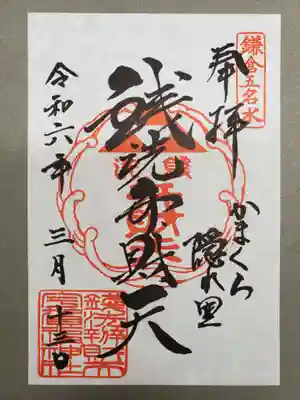 鎌倉五名水
奉拝
かまくら
隠れ里
銭洗弁財天
令和六年
三月
十三日